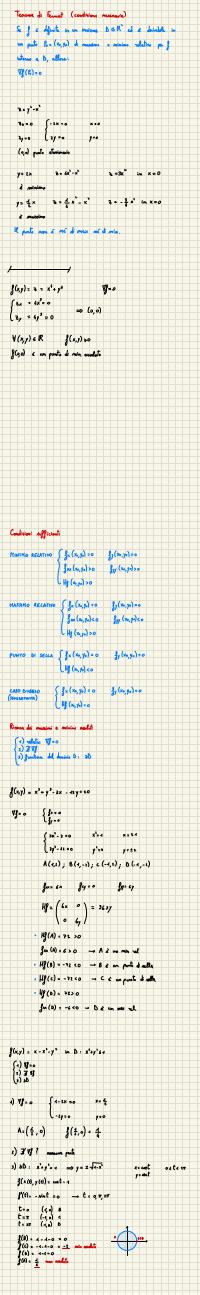 Teorema di Fermat (condizione necessaria)
Se f è definita in un insieme D⊆R² ed è derivabile in
un punto P₀=(x₀,y₀) di massimo o minimo relativo per f
interno a D, allora:
∇f(P₀)=0
z=y²-x²
zx=0 { -2x=0 x=0
zy=0 2y=0 y=0
(0,0) punto stazionario
y=2x z=4x²-x² z=3x² in x=0
è minimo
è massimo
Il punto non è né di max né di min.
f(x,y) = z = x⁴+y⁴ ∇f=0
{ zx = 4x³=0
zy = 4y³=0 ⇒ (0,0)
∀(x,y)∈R f(x,y)≥0
f(0,0) è un punto di min assoluto
Condizioni sufficienti
MINIMO RELATIVO { fx(x₀,y₀)=0 fy(x₀,y₀)=0
fxx(x₀,y₀)>0 fyy(x₀,y₀)>0
Hf(x₀,y₀)>0
MASSIMO RELATIVO { fx(x₀,y₀)=0 fy(x₀,y₀)=0
fxx(x₀,y₀)<0 fyy(x₀,y₀)<0
Hf(x₀,y₀)>0
PUNTO DI SELLA { fx(x₀,y₀)=0 fy(x₀,y₀)=0
Hf(x₀,y₀)<0
CASO DUBBIO { fx(x₀,y₀)=0 fy(x₀,y₀)=0
Hf(x₀,y₀)=0
Ricerca dei massimi e minimi assoluti
1) relativi ∇f=0
2) ∄ ∇f
3) frontiera del dominio D: ∂D
f(x,y) = x³+y³-3x-12y+20
∇f=0 { fx=0
fy=0
{ 3x²-3=0 x²=1 x=±1
3y²-12=0 y²=4 y=±2
A(1,2); B(1,-2); C(-1,2); D(-1,-2)
fxx=6x fxy=0 fyy=6y
Hf = ( 6x 0
0 6y ) = 36xy
• Hf(A)=72>0
fxx(A)=6>0 → A è un min rel
• Hf(B)=-72<0 → B è un punto di sella
• Hf(C)=-72<0 → C è un punto di sella
• Hf(D)=72>0
fxx(D)=-6<0 → D è un max rel
f(x,y) = x-x²-y² in D: x²+y²≤1
1) ∇f=0
2) ∄ ∇f
3) ∂D
1) ∇f=0 { 1-2x=0 x=1/2
-2y=0 y=0
A=(1/2,0) f(1/2,0)=1/4
2) ∄ ∇f | nessun punto
3) ∂D: x²+y²=1 ⇒ y=±√1-x² x=cost 0≤t≤2π
y=sint
f(x(t),y(t)) = cost-1
f'(t) = -sint=0 → t=0,π,2π
t=0 (1,0) B
t=π (-1,0) C
t=2π (1,0) B
f(B)=1-1-0=0
f(C)=-1-1-0=-2 min assoluto